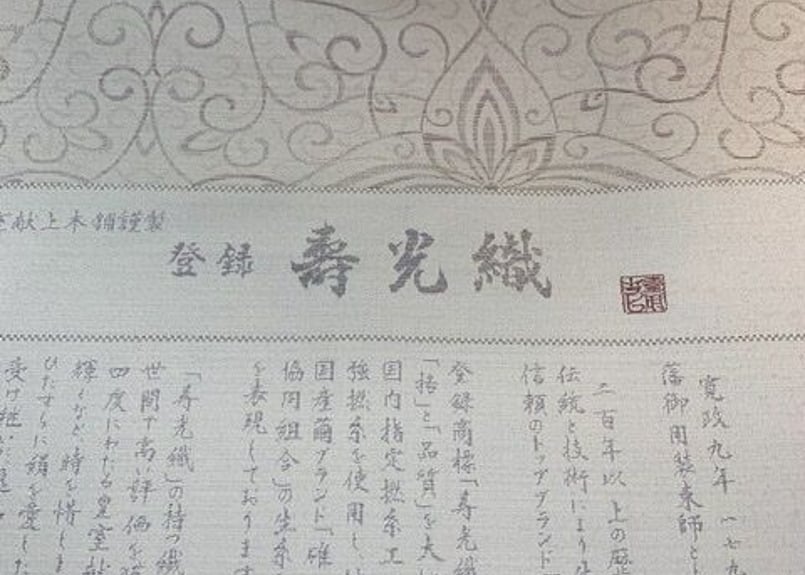 登録 壽光織
献上本舗謹製
寛政九年 一七九
藩御用装束師と
二百年以上の歴
伝統と技術により
信頼のトップブランド
登録商標「寿光織
「格」と「品質」を
国内指定撚糸工
強撚糸を使用し、
国産繭ブランド「碓
協同組合」の生糸
を表現しております
「寿光織」の持つ
世間で高い評価を
四度にわたる皇室献
輝くなど、時を惜しま
ひたすらに絹を愛した
受け継